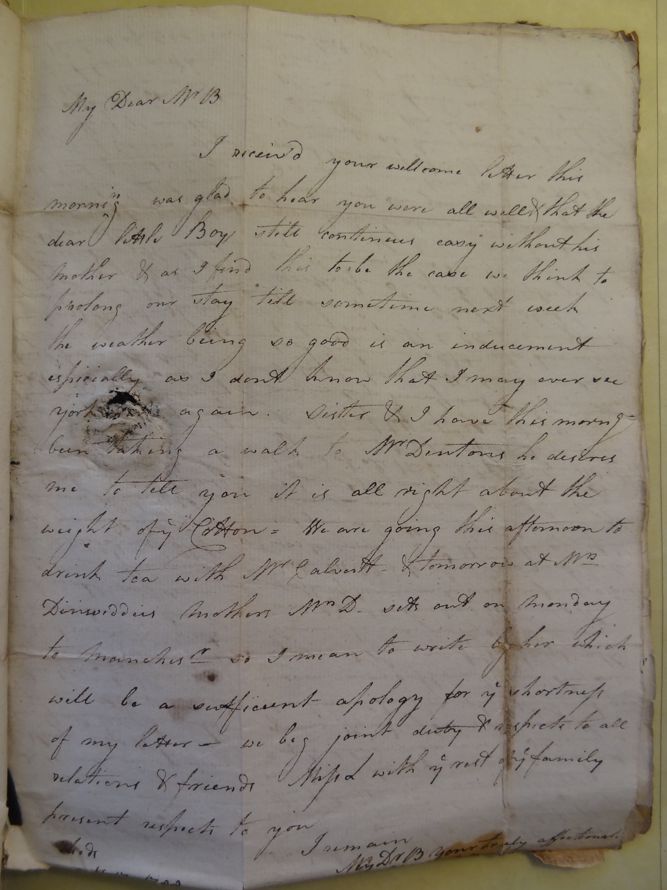 My Dear Mr B
I receiv'd your wellcome letter this
morning was glad to hear you were all well & that the
dear little Boy still continues easy without his
mother & as I find this to be the case we think to
prolong our stay till sometime next week
the weather being so good is an inducement
espicially as I dont know that I may ever see
york again. Sister & I have this morng
been taking a walk to Mr Dentons he desires
me to tell you it is all right about the
weight of ye Cotton = We are going this afternoon to
drink tea with Mrs Calvertt & tomorrow at Mrs
Dinswiddies mothers Mrs D. sets out on monday
to manchesr so I mean to write by her which
will be a sufficient apology for ye shortness
of my letter = we beg joint duty & respects to all
relations & friends Miss L with ye rest of ye family
present respects to you
I remain
My Dr B yours truly affectionate